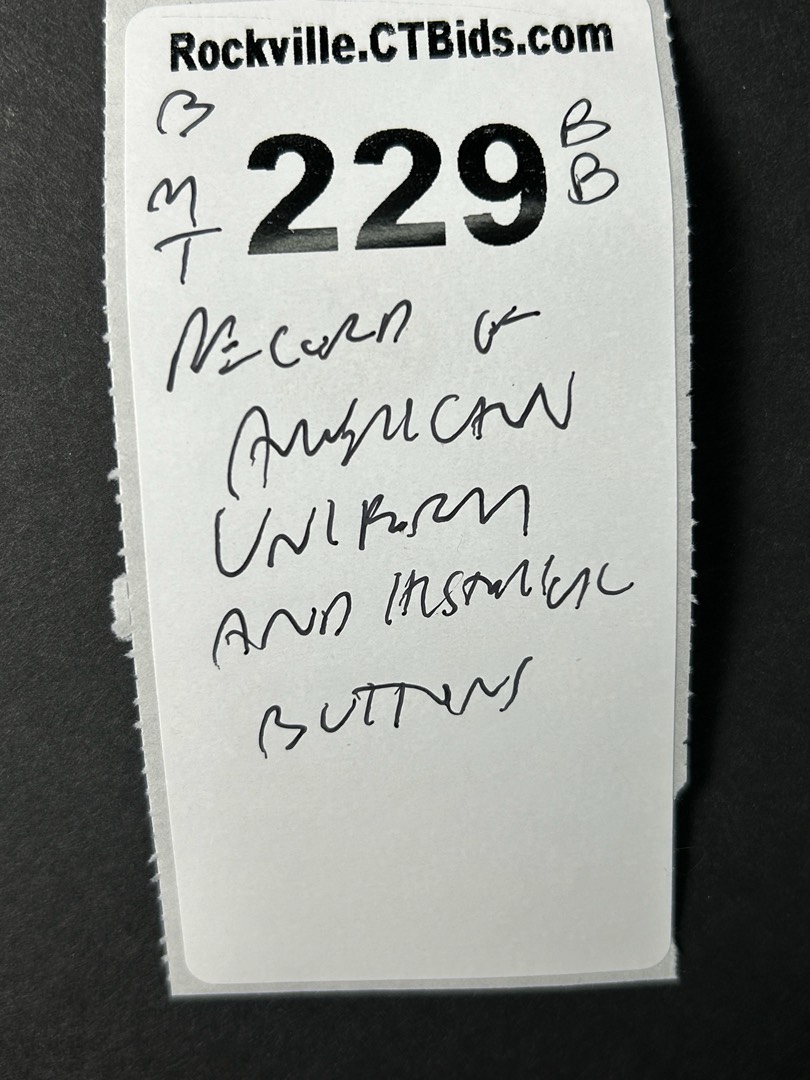 Rockville.CTBids.com
B
M
T
229
B
B
RECORD OF
AMERICAN
UNIFORM
AND HISTORICAL
BUTTONS